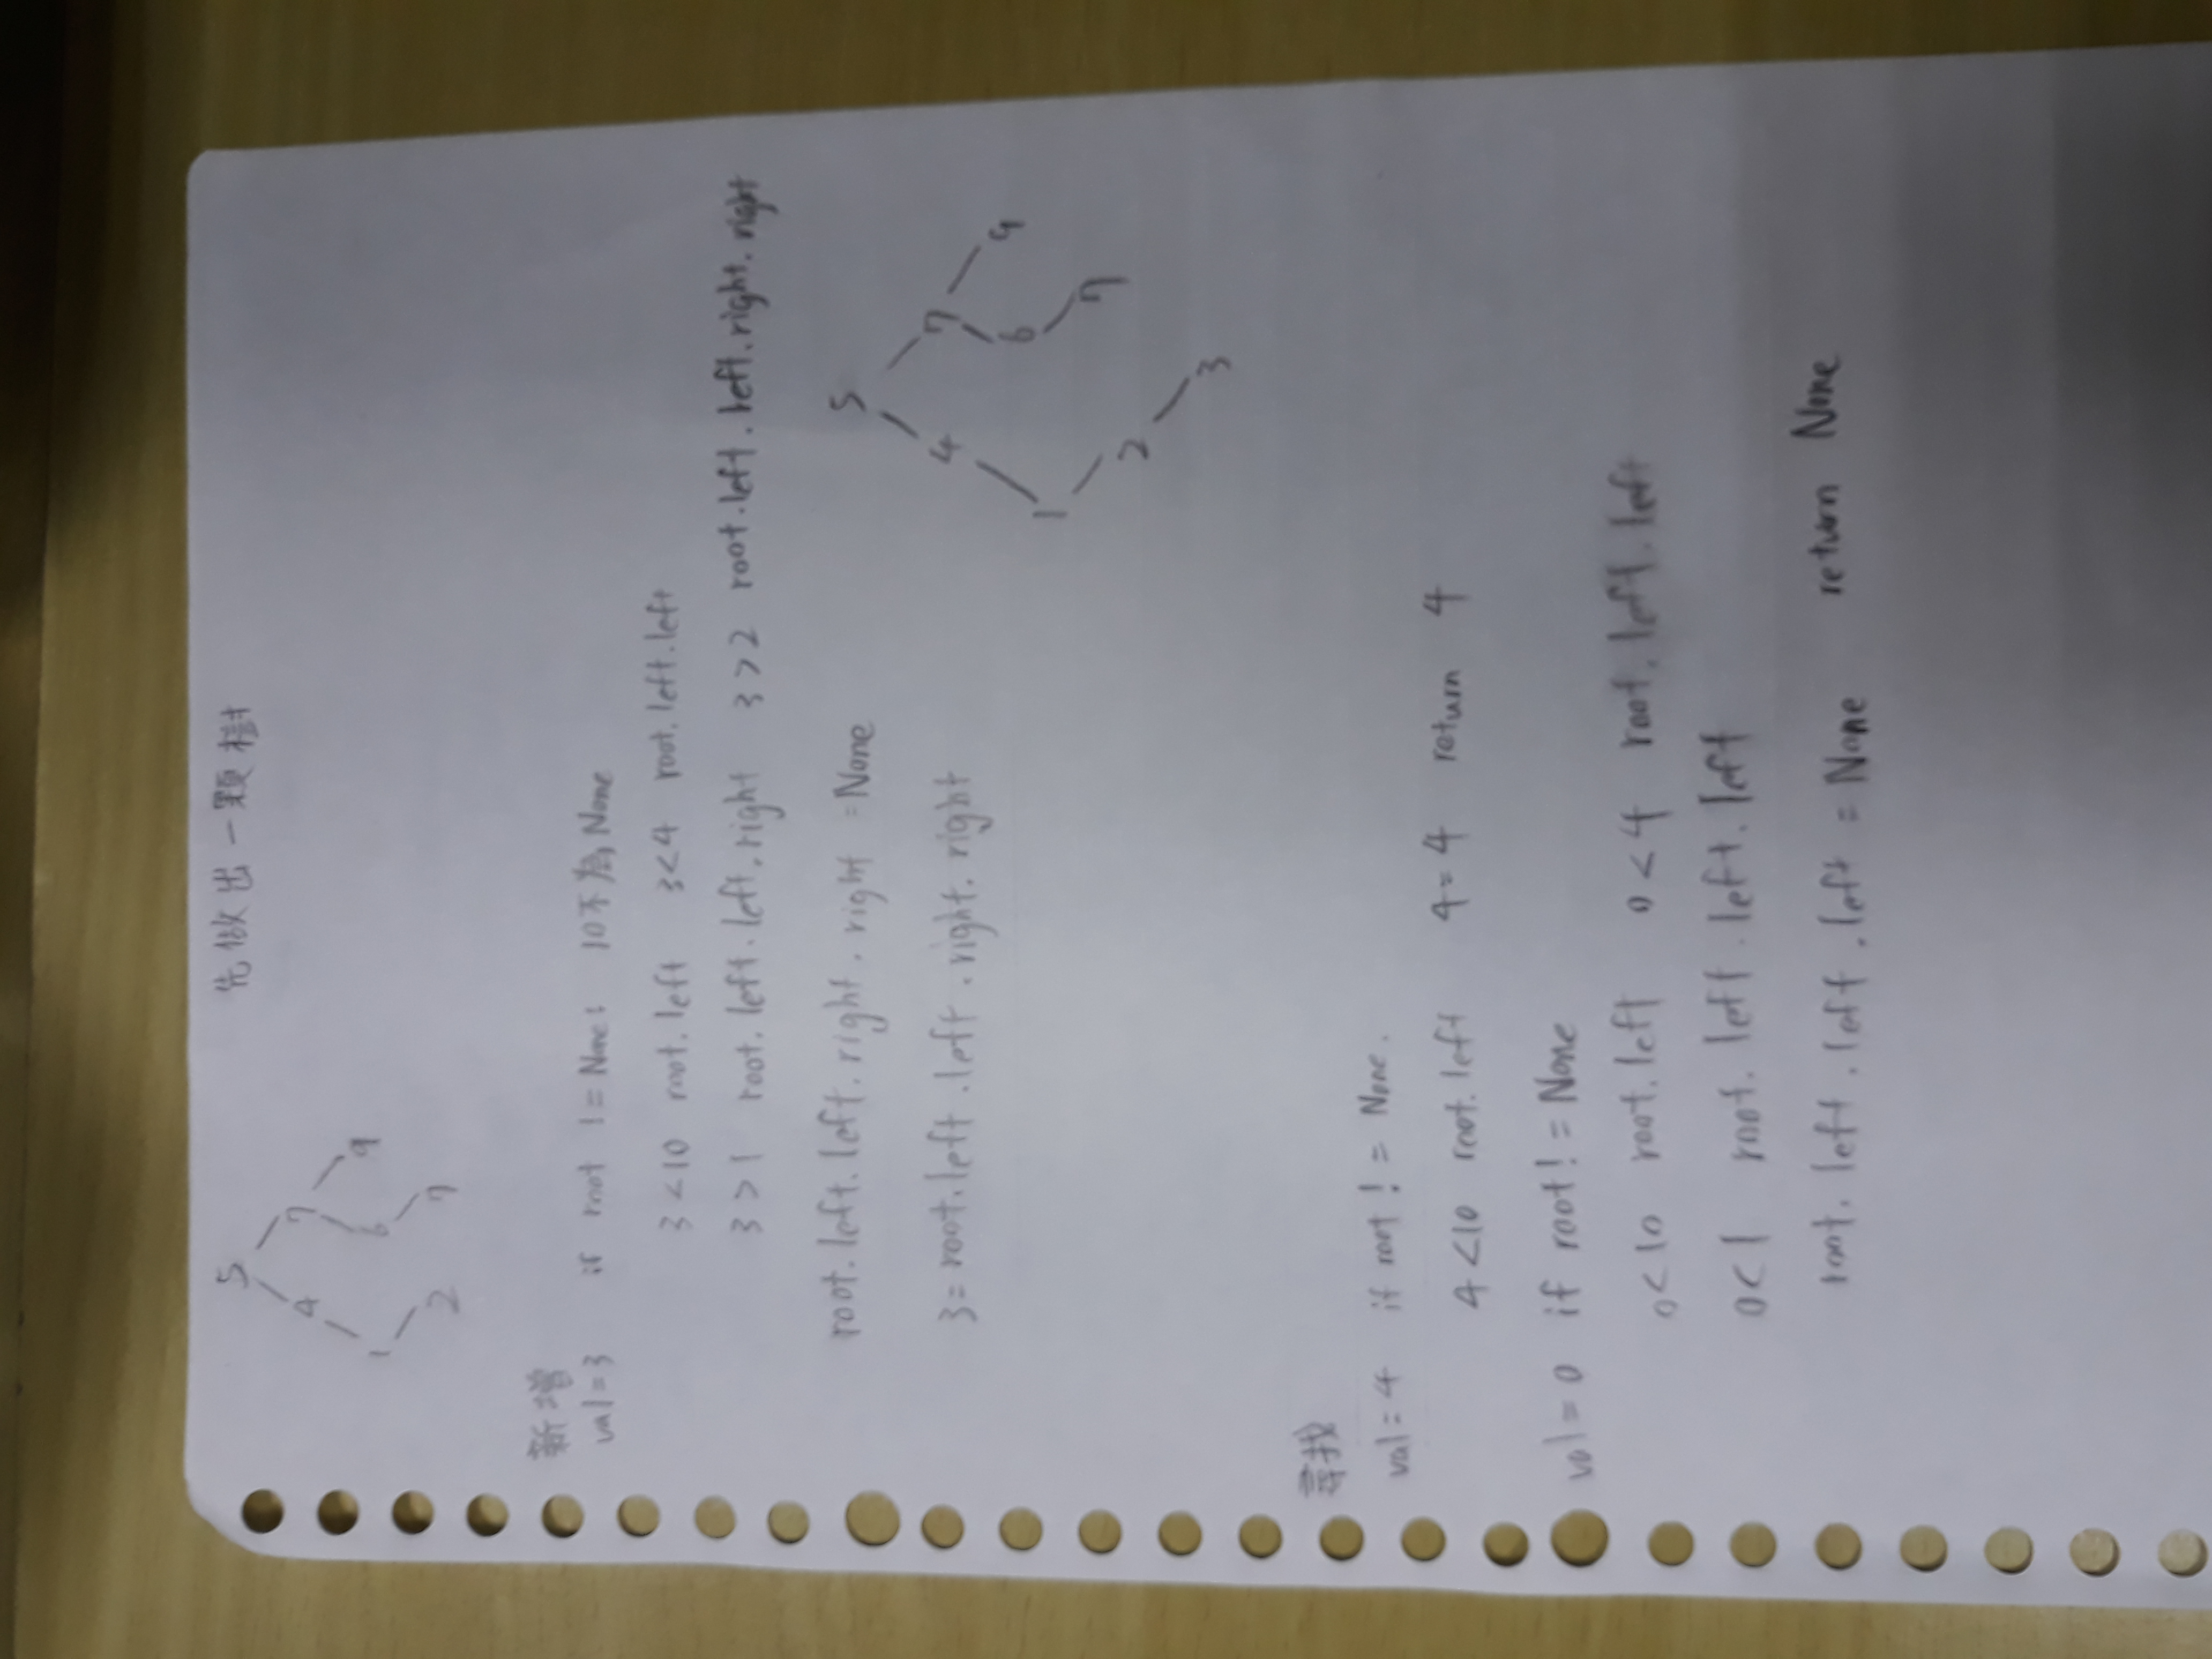 先做出一顆樹
5
4 7
1 6 9
2 7
新增
val=3 if root != None: 10不為None
3<10 root.left 3<4 root.left.left
3>1 root.left.left.right 3>2 root.left.left.right.right
root.left.left.right.right =None
3=root.left.left.right.right
5
4 7
1 6 9
2 7
3
尋找
val=4 if root != None.
4<10 root.left 4=4 return 4
val=0 if root!=None
0<10 root.left 0<4 root.left.left
0<1 root.left.left.left
root.left.left.left = None return None